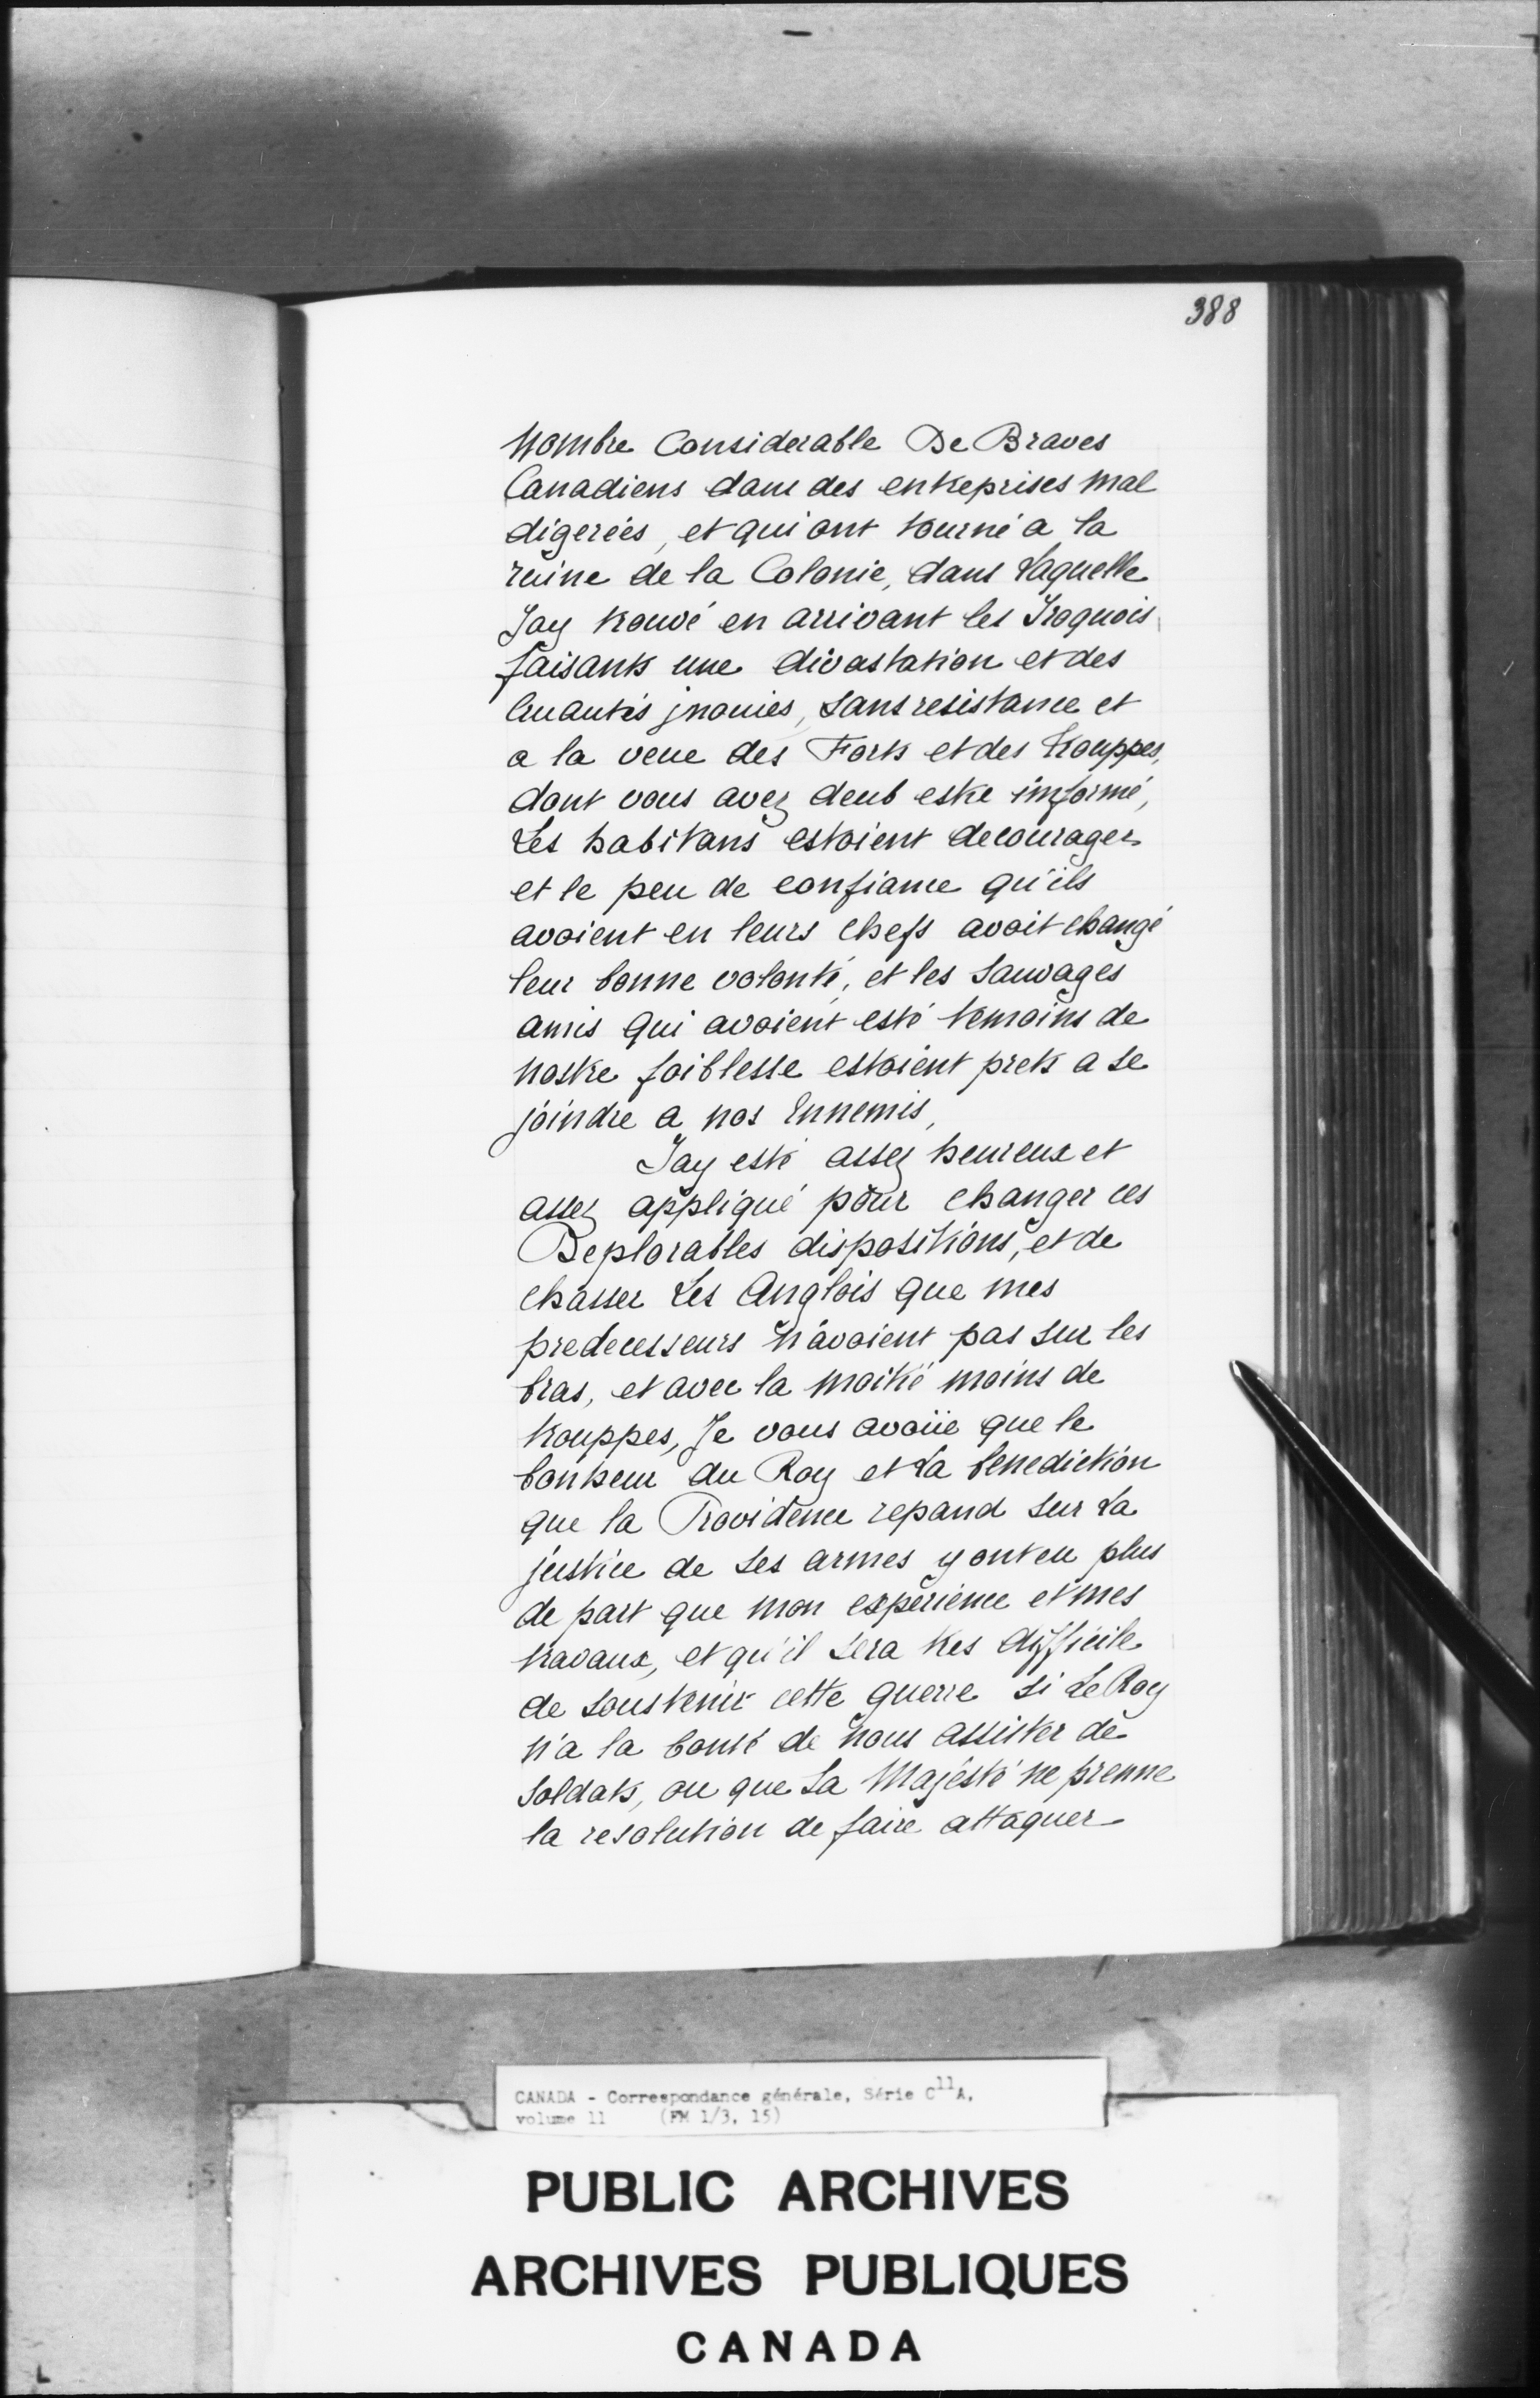 388
Nombre Considerable De Braves
Canadiens dans des entreprises mal
digereés, et qui ont tourné a la
ruine de la Colonie, dans Laquelle
Jay trouvé en arrivant les Iroquois
faisants une divastation et des
Cruautés jnouies, sans resistance et
a la veue des Forts et des trouppes,
dont vous avez deub estre informé,
Les habitans estoient decouragez
et le peu de confiance qu'ils
avoient en leurs chefs avoit changé
leur bonne volonté, et les Sauvages
amis qui avoient esté temoins de
nostre foiblesse estoient prets a se
joindre a nos Ennemis,
Jay esté assez heureux et
assez appliqué pour changer ces
Deplorables dispositions, et de
chasser Les Anglois que mes
predecesseurs n'avoient pas sur les
bras, et avec la moitié moins de
trouppes, Je vous avoüe que le
bonheur du Roy et La benediction
que la Providence repand sur La
justice de ses armes y ont eu plus
de part que mon experience et mes
travaux, et qu'il sera tres difficile
de soustenir cette guerre si Le Roy
n'a la bonté de nous assister de
soldats, ou que Sa Majesté ne prenne
la resolution de faire attaquer
CANADA - Correspondance générale, Série C11A,
volume 11 (FM 1/3, 15)
PUBLIC ARCHIVES
ARCHIVES PUBLIQUES
CANADA
L